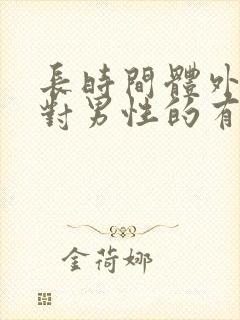 長時間體外
對男性的有
金荷娜